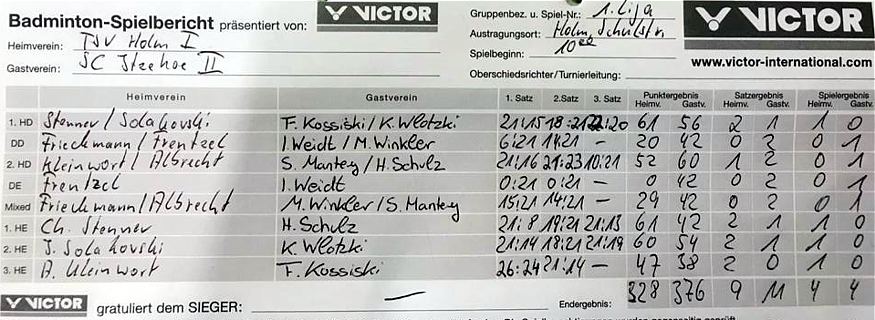 Badminton-Spielbericht präsentiert von: VICTOR Gruppenbez. u. Spiel-Nr.: 1. Liga VICTOR
Heimverein: TSV Holm I Austragungsort: Holm,
Gastverein: SC Itzehoe II Spielbeginn: 10 00
Oberschiedsrichter/Turnierleitung: www.victor-international.com
Heimverein Gastverein 1. Satz 2. Satz 3. Satz Punktergebnis Heimv. Gastv. Satzergebnis Heimv. Gastv. Spielergebnis Heimv. Gastv.
1. HD Stenner/Solakovski F. Kossiski/K. Wlotzki 21:15 18:21 22:20 61 56 2 1 1 0
DD Frieckmann/Frentzel I. Weidt/M. Winkler 6:21 14:21 – 20 42 0 2 0 1
2. HD Kleinwort/Albrecht S. Mantey/H. Schulz 21:16 21:23 10:21 52 60 1 2 0 1
DE Frentzel I. Weidt 0:21 0:21 – 0 42 0 2 0 1
Mixed Frieckmann/Albrecht M. Winkler/S. Mantey 15:21 14:21 – 29 42 0 2 0 1
1. HE Ch. Stenner H. Schulz 21:8 19:21 21:13 61 42 2 1 1 0
2. HE J. Solakovski K. Wlotzki 21:14 18:21 21:19 60 54 2 1 1 0
3. HE B. Kleinwort F. Kossiski 26:24 21:14 – 47 38 2 0 1 0
VICTOR gratuliert dem SIEGER: – Endergebnis: 328 376 9 11 4 4